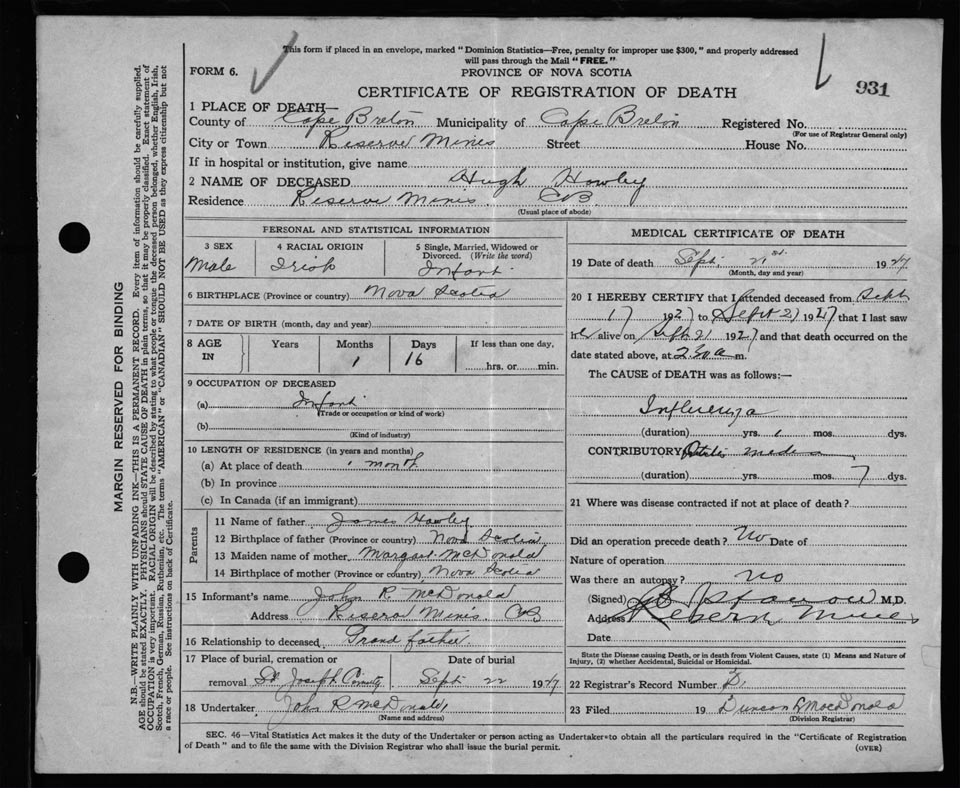 This form if placed in an envelope, marked "Dominion Statistics—Free, penalty for improper use $300," and properly addressed
will pass through the Mail "FREE."
FORM 6.
PROVINCE OF NOVA SCOTIA
931
CERTIFICATE OF REGISTRATION OF DEATH
1 PLACE OF DEATH—
County of Cape Breton Municipality of Cape Breton Registered No.
(For use of Registrar General only)
City or Town Reserve Mines Street House No.
If in hospital or institution, give name
2 NAME OF DECEASED Hugh Howley
Residence Reserve Mines CB
(Usual place of abode)
PERSONAL AND STATISTICAL INFORMATION
3 SEX 4 RACIAL ORIGIN 5 Single, Married, Widowed or
Divorced. (Write the word)
Male Irish Infant
6 BIRTHPLACE (Province or country) Nova Scotia
7 DATE OF BIRTH (month, day and year)
8 AGE IN Years Months Days If less than one day,
1 16 hrs. or min.
9 OCCUPATION OF DECEASED
(a) Infant
(Trade or occupation or kind of work)
(b)
(Kind of industry)
10 LENGTH OF RESIDENCE (in years and months)
(a) At place of death 1 month
(b) In province
(c) In Canada (if an immigrant)
Parents
11 Name of father James Howley
12 Birthplace of father (Province or country) Nova Scotia
13 Maiden name of mother Margaret McDonald
14 Birthplace of mother (Province or country) Nova Scotia
15 Informant's name John R. McDonald
Address Reserve Mines. CB
16 Relationship to deceased Grand father
17 Place of burial, cremation or Date of burial
removal St Joseph Sept 22 1927
18 Undertaker John R McDonald
(Name and address)
MEDICAL CERTIFICATE OF DEATH
19 Date of death Sept. 21st. 1927
(Month, day and year)
20 I HEREBY CERTIFY that I attended deceased from Sept
17 1927 to Sept 21 1927 that I last saw
h alive on Sept 21 1927 and that death occurred on the
date stated above, at 2.30 a m.
The CAUSE of DEATH was as follows:—
Influenza
(duration) yrs. 1 mos. dys.
CONTRIBUTORY Otitis media
(duration) yrs. mos. 7 dys.
21 Where was disease contracted if not at place of death?
Did an operation precede death? No Date of
Nature of operation
Was there an autopsy? no
(Signed) M.D.
Address Mines
Date
State the Disease causing Death, or in death from Violent Causes, state (1) Means and Nature of
Injury, (2) whether Accidental, Suicidal or Homicidal.
22 Registrar's Record Number
23 Filed 19 Duncan MacDonald
(Division Registrar)
SEC. 46—Vital Statistics Act makes it the duty of the Undertaker or person acting as Undertaker to obtain all the particulars required in the "Certificate of Registration
of Death" and to file the same with the Division Registrar who shall issue the burial permit.
(OVER)
MARGIN RESERVED FOR BINDING
N.B.—WRITE PLAINLY WITH UNFADING INK—THIS IS A PERMANENT RECORD. Every item of information should be carefully supplied.
AGE should be stated EXACTLY. PHYSICIANS should STATE CAUSE OF DEATH in plain terms, so that it may be properly classified. Exact statement of
OCCUPATION is very important. RACIAL ORIGIN will be described by stating to what people or tongue the deceased person belonged, whether English, Irish,
Scotch, French, German, Russian, Ruthenian, etc. The terms "AMERICAN" or "CANADIAN" SHOULD NOT BE USED as they express citizenship but not
a race or people. See instructions on back of Certificate.